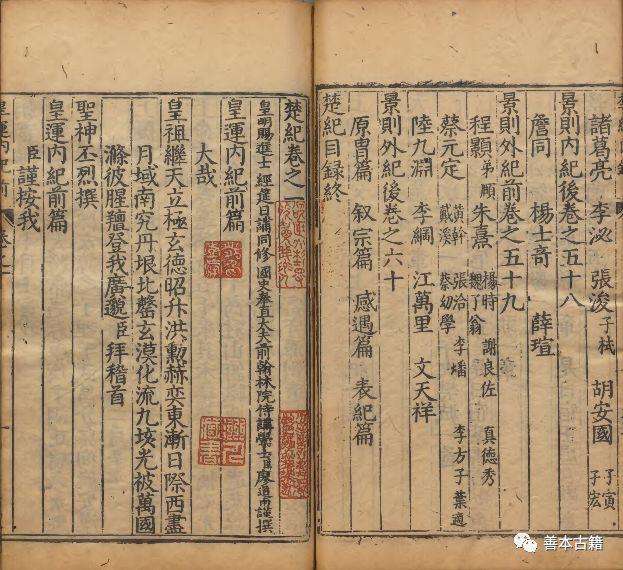 諸葛亮 李泌 張浚子栻 胡安國子寅子宏
景則内紀後卷之五十八
詹同 楊士奇 薛瑄
景則外紀前卷之五十九
程顥弟頤 朱熹 楊時 謝良佐 真德秀
蔡元定 黃幹 張洽 魏了翁 李燔 李方子 葉適 戴溪 蔡幼學
陸九淵 李綱 江萬里 文天祥
景則外紀後卷之六十
原胄篇 叙宗篇 感遇篇 表紀篇
楚紀目録終
楚紀卷之一
皇明賜進士 經筵日講同修 國史奉直大夫前翰林院侍講學士臣廖道南謹撰
皇運内紀前篇
大哉
皇祖繼天立極玄德昭升洪勲赫奕東漸日際西盡
月域南究丹垠北罄玄漠化流九垓光被萬國
滌彼腥羶登我廣邈臣拜稽首
聖神丕烈撰
皇運内紀前篇
臣謹按我
善本古籍